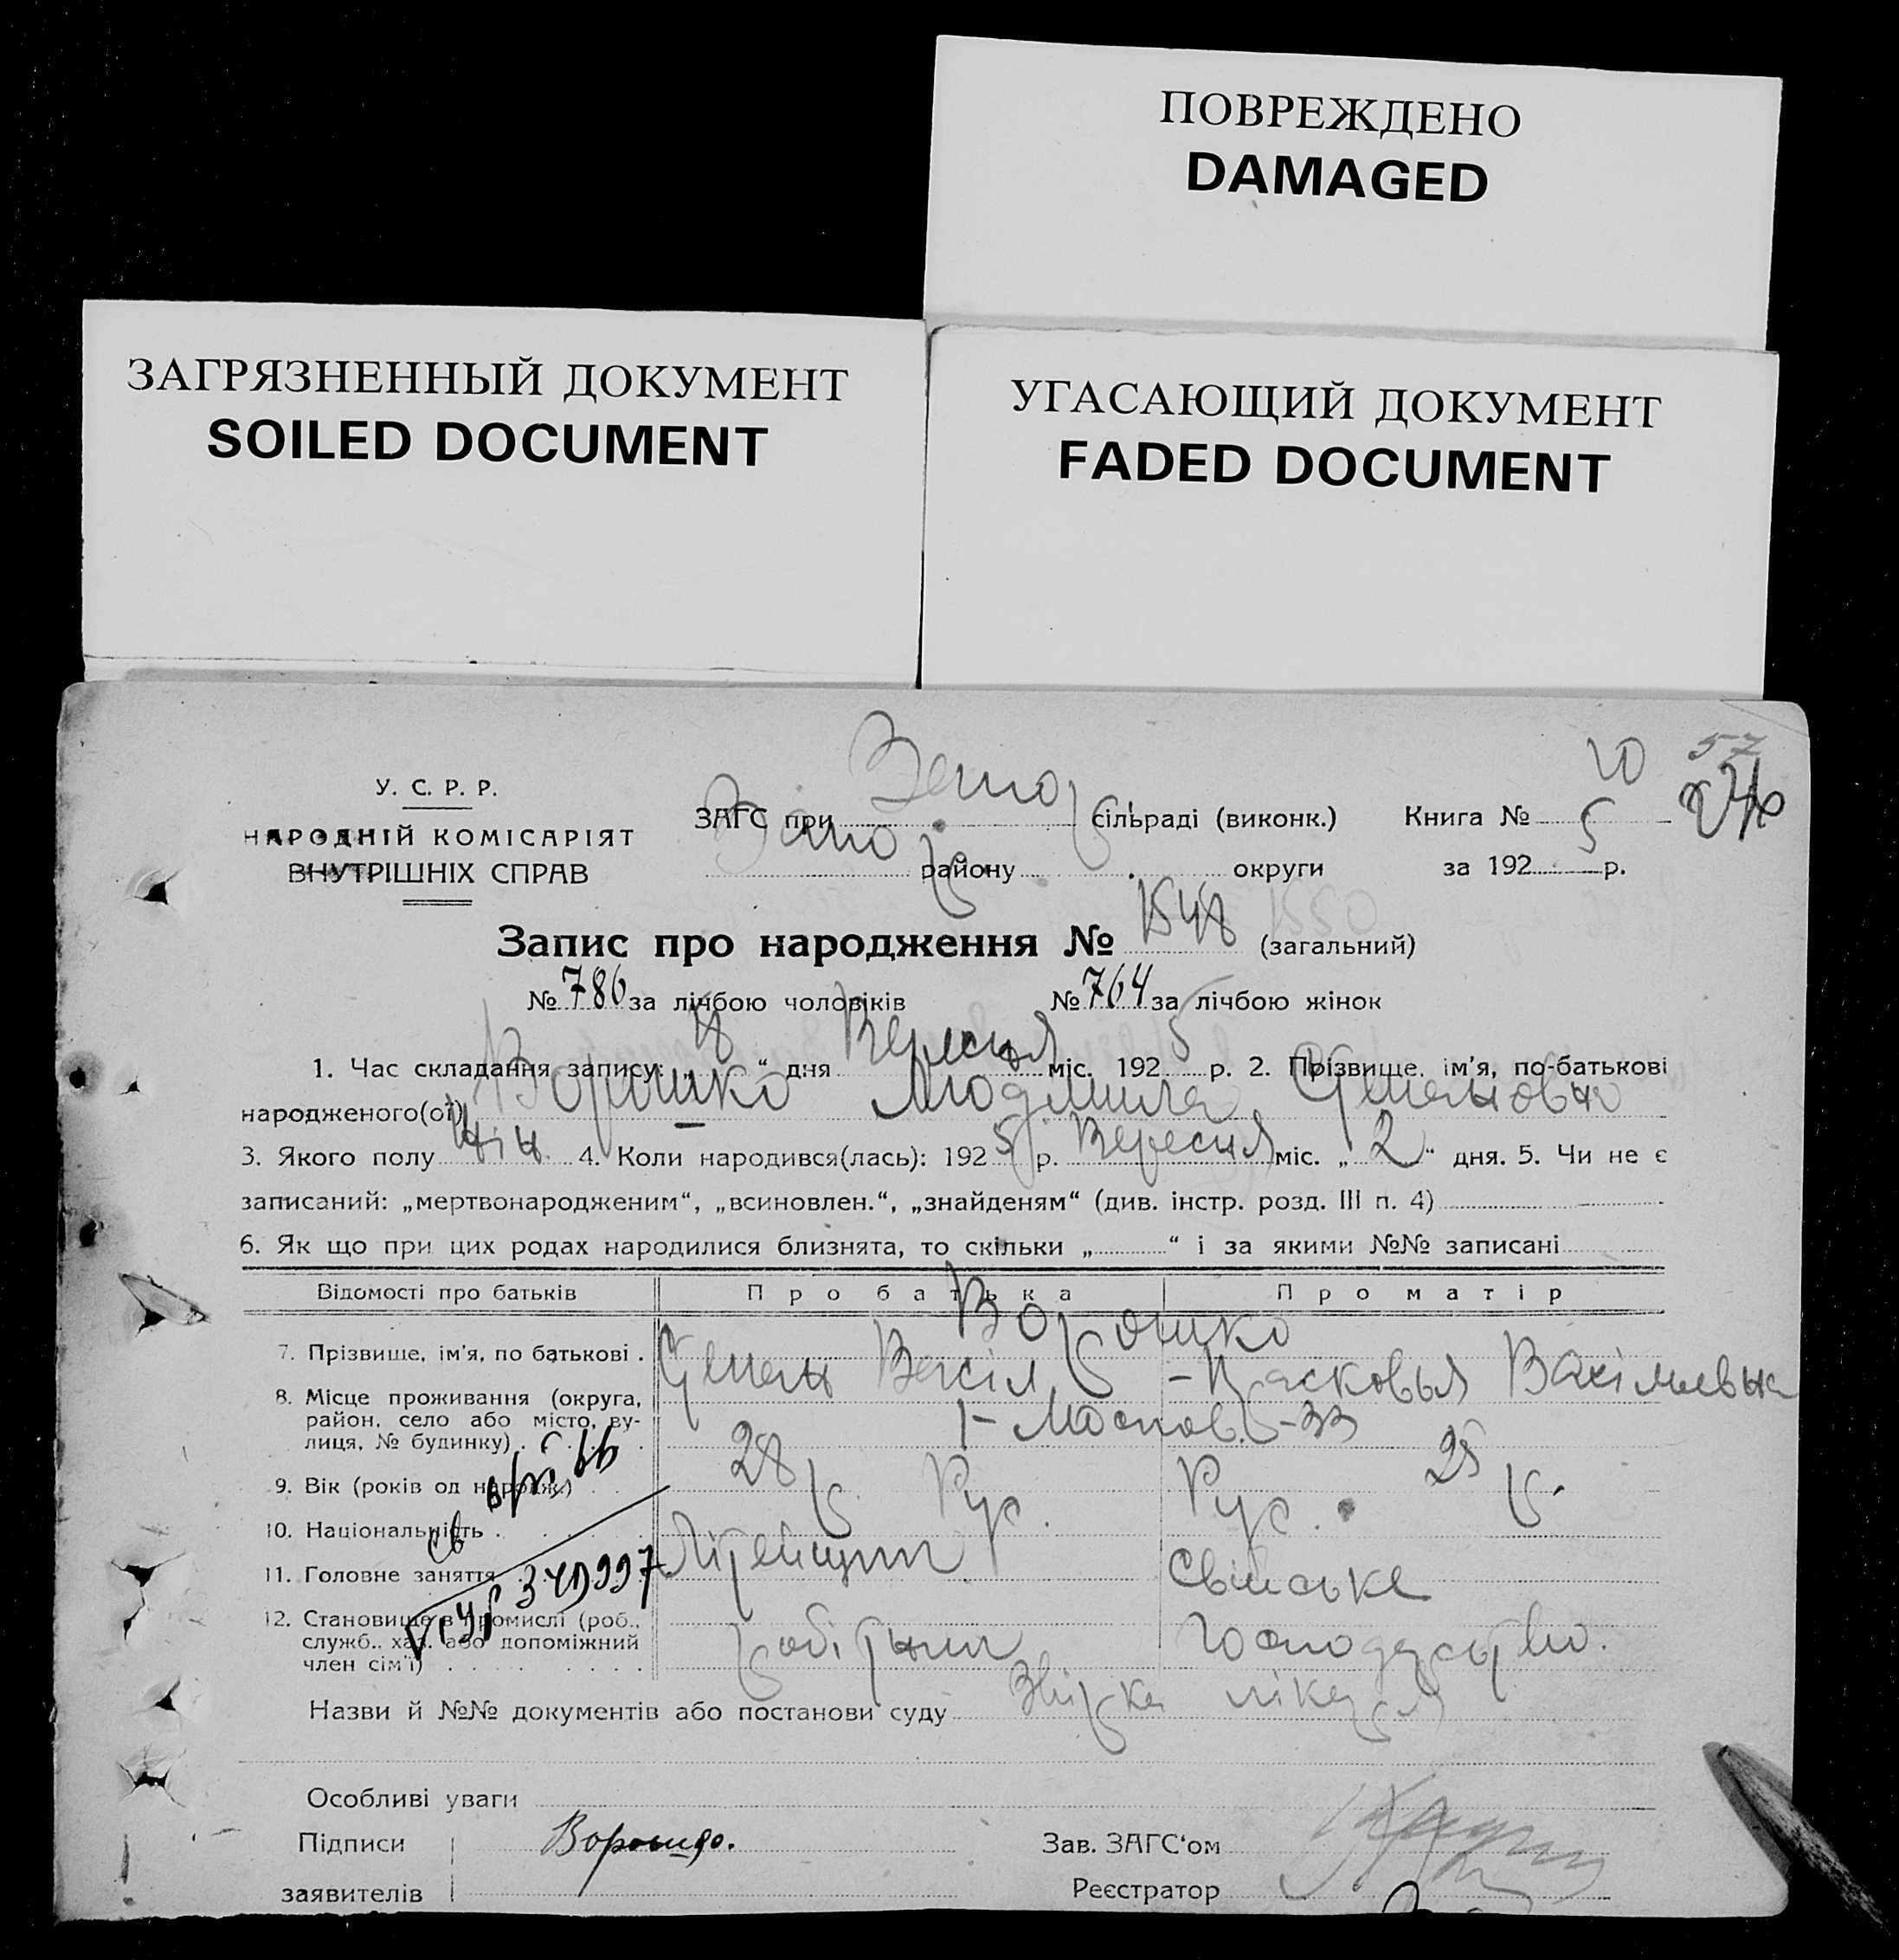 ПОВРЕЖДЕНО
DAMAGED
ЗАГРЯЗНЕННЫЙ ДОКУМЕНТ
SOILED DOCUMENT
УГАСАЮЩИЙ ДОКУМЕНТ
FADED DOCUMENT
10 57
У. С. Р. Р.
НАРОДНІЙ КОМІСАРІЯТ
ВНУТРІШНІХ СПРАВ
ЗАГС при Запор сільраді (виконк.) Книга №
Запор району округи за 192 5 р.
Запис про народження № 1548 1550 (загальний)
№ 786 за лічбою чоловіків № 764 за лічбою жінок
1. Час складання запису: „ 18 “ дня Вересня міс. 192 5 р. 2. Прізвище, ім'я, по-батькові
народженого(ої) Ворошко Людмила Семеновна
3. Якого полу жін. 4. Коли народився(лась): 192 5 р. Вересня міс. „ 2 “ дня. 5. Чи не є
записаний: „мертвонародженим“, „всиновлен.“, „знайденям“ (див. інстр. розд. III п. 4)
6. Як що при цих родах народилися близнята, то скільки „ “ і за якими №№ записані
Відомості про батьків Про батька Про матір
Ворошко
7. Прізвище, ім'я, по батькові . Семен Васіл - Парасковья Васільевна
8. Місце проживання (округа,
район, село або місто, ву-
лиця, № будинку) . . . . . -33
9. Вік (років од народж.) . . 28 р. 25 р.
10. Національність . . . Рус. Рус.
11. Головне заняття . . . Свійське
12. Становище в промислі (роб.,
служб., хаз. або допоміжний
член сім'ї) . . . . . робітник господарство.
Назви й №№ документів або постанови суду Звірка лікаря
Особливі уваги
Підписи Ворошко. Зав. ЗАГС'ом
заявителів Реєстратор